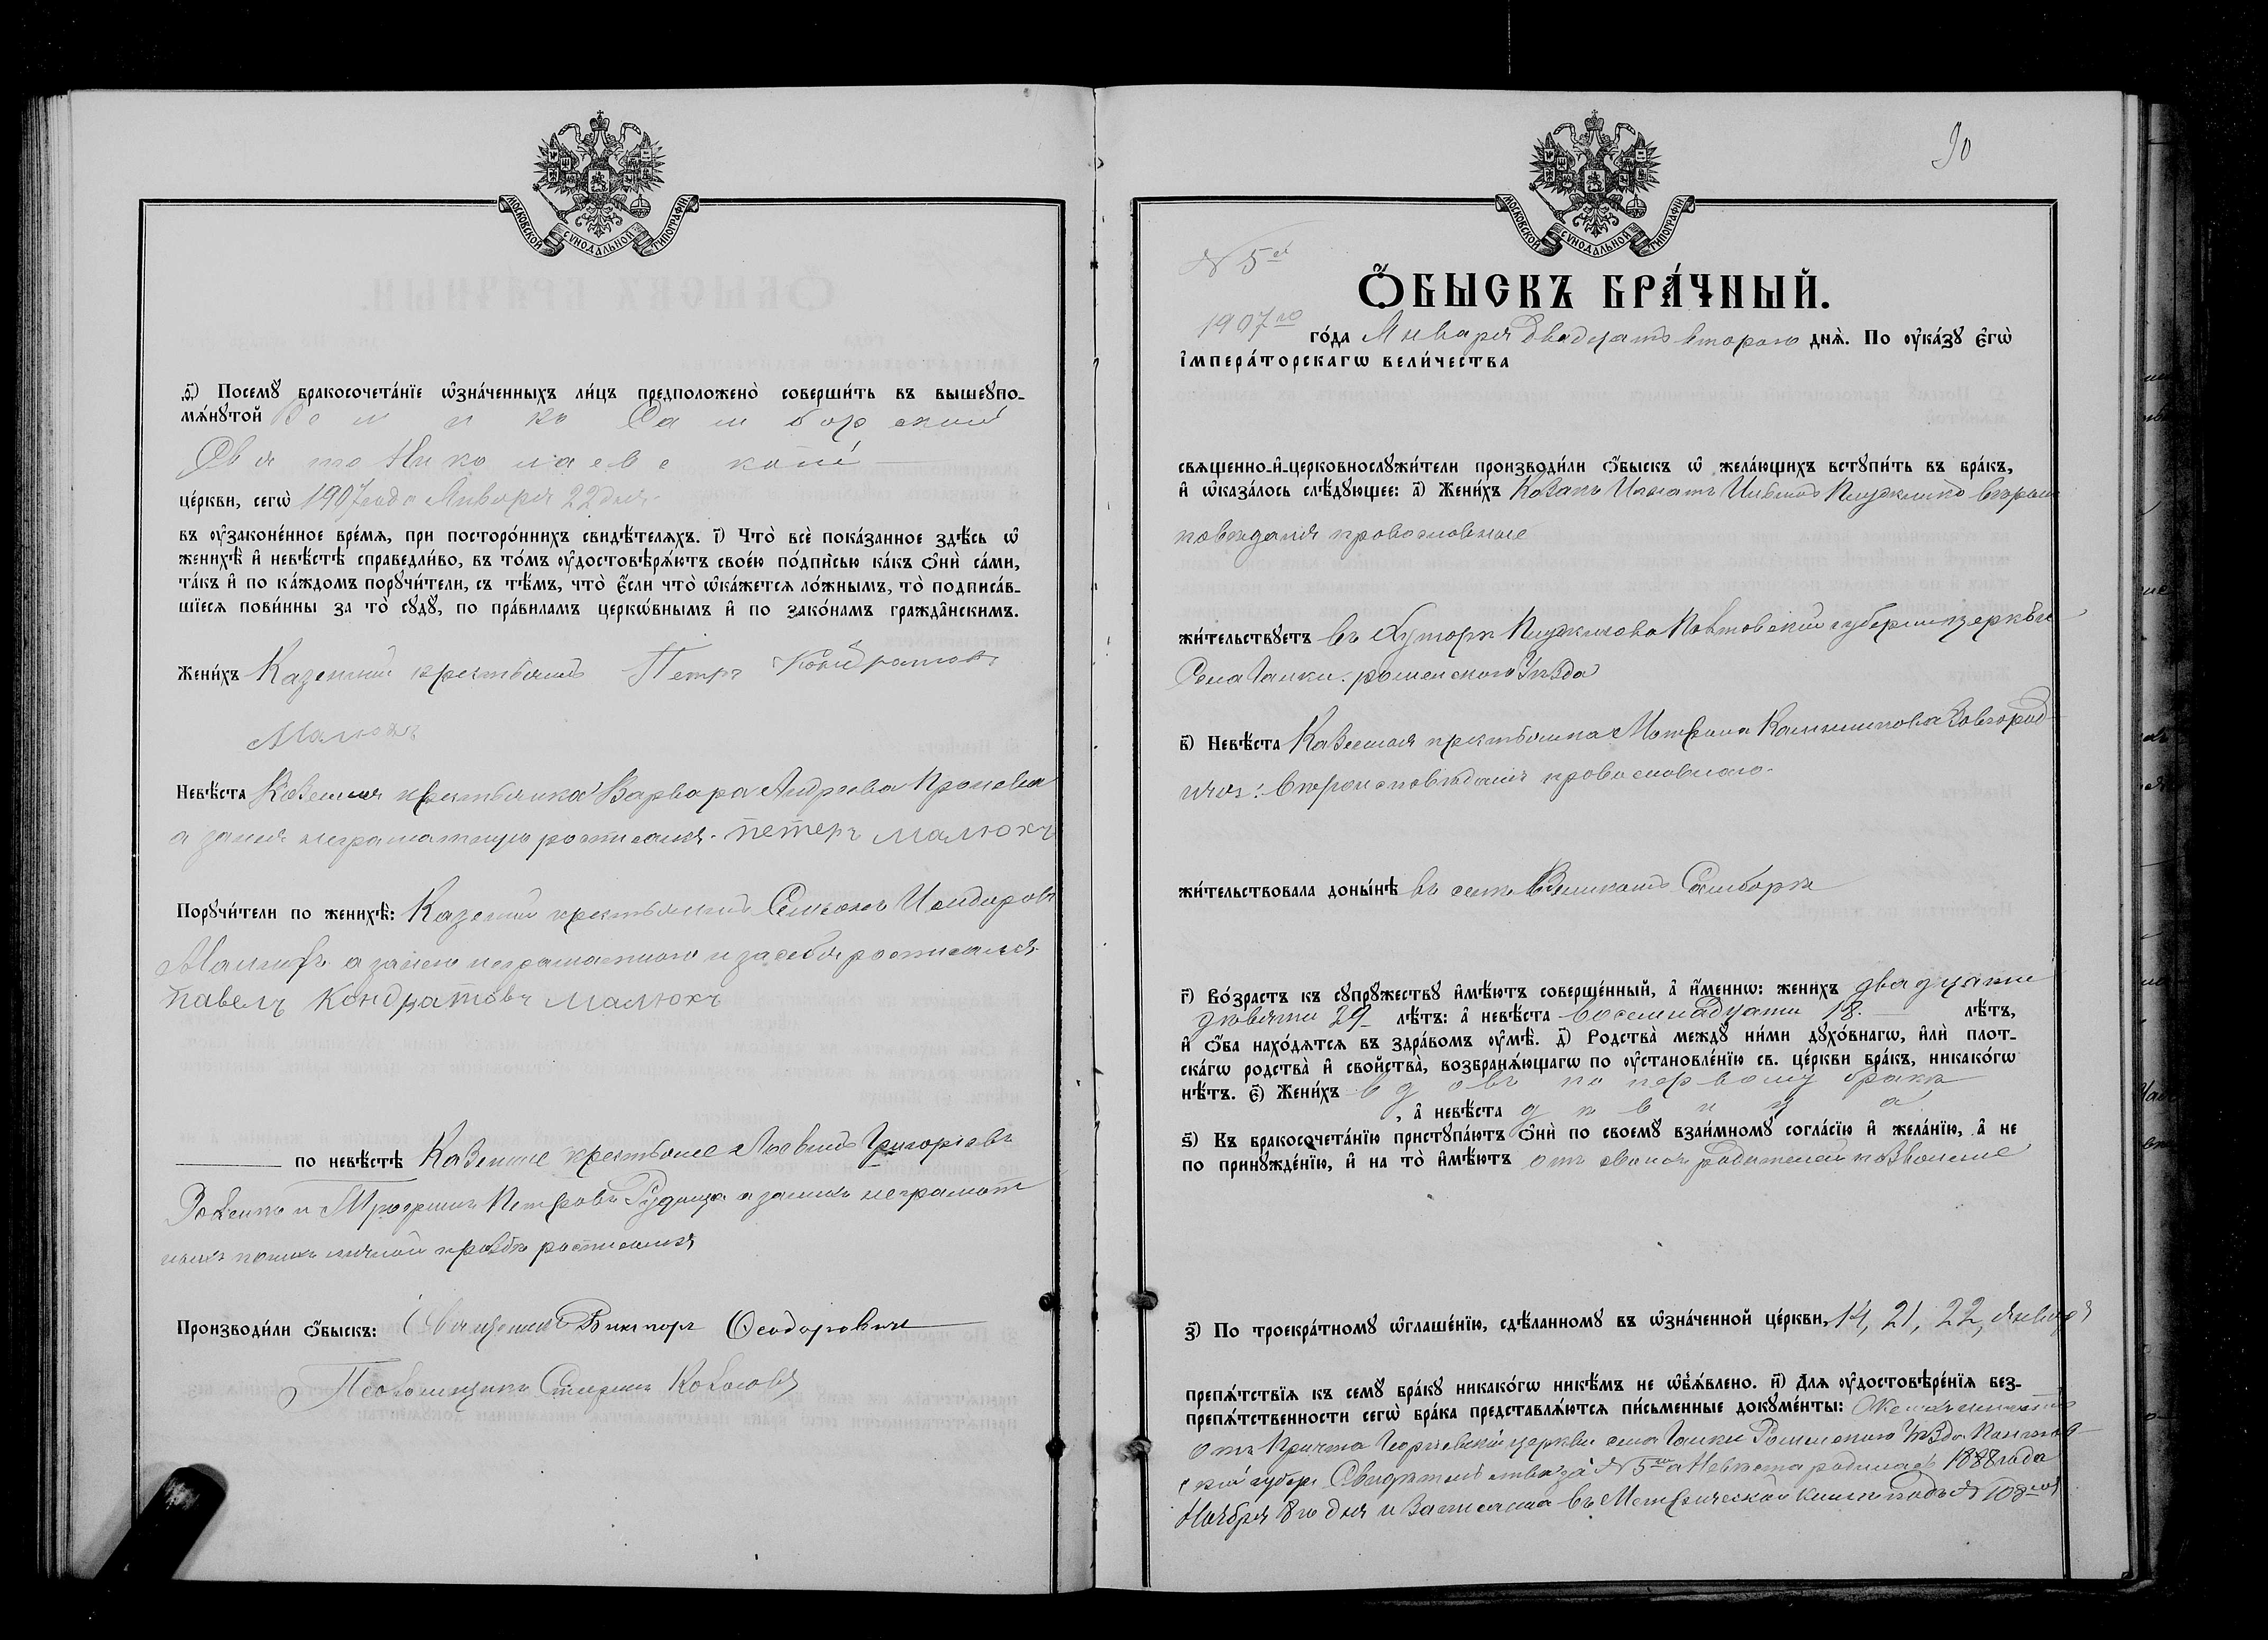 МОСКОВСКОЙ СѴНОДАЛЬНОЙ ТИПОГРАФІИ
Посемꙋ бракосочета́нїе ѡ҆зна́ченныхъ ли́цъ предположено̀ соверши́ть въ вышеꙋпо-
мѧ́нꙋтой Велико Самборской
Свято Николаевс кой
це́ркви, сегѡ̀ 1907 года Января 22 дня
въ ᲂу҆законе́нное вре́мѧ, при посторо́ннихъ свидѣ́телѧхъ. і҃) Что̀ всѐ пока́занное здѣ́сь ѡ҆
женихѣ̀ и҆ невѣ́стѣ справедли́во, въ то́мъ ᲂу҆достовѣрѧ́ютъ свое́ю по́дписью ка́къ ѻ҆нѝ са́ми,
та́къ и҆ по ка́ждомъ порꙋчи́тели, съ тѣ́мъ, что̀ є҆́сли что̀ ѡ҆ка́жетсѧ ло́жнымъ, то̀ подписа́в-
шїесѧ пови́нны за то̀ сꙋдꙋ̀, по пра́виламъ церкѡ́внымъ и҆ по зако́намъ гражда̂нскимъ.
Жени́хъ Казенный крестьянинъ Петръ Кондратовъ
Малюкъ
Невѣ́ста Казенная крестьянка Варвара Андреева
а за нея неграмотную росписался. петеръ малюкъ
Порꙋчи́тели по женихѣ̀: Казенный крестьянинъ Семіонъ Исидоровъ
Малюкъ а за него неграмотного и за себя росписался
павелъ кондратовъ малюкъ
по невѣ́стѣ Казенные крестьяне Григоріевъ
и Трофимъ Петровъ а за нихъ неграмот
ныхъ по ихъ личной прозбѣ росписался
Производи́ли ѻ҆́быскъ: Священникъ Викторъ Ѳеодоровичъ
Псаломщикъ
90
МОСКОВСКОЙ СѴНОДАЛЬНОЙ ТИПОГРАФІИ
№ 5й
Ѻ҆БЫСКЪ БРА́ЧНЫЙ.
1907го го́да Января двадцать второго днѧ̀. По ᲂу҆ка́зꙋ є҆гѡ̀
і҆мпера́торскагѡ вели́чества
свѧщенно-и҆-церковнослꙋжи́тели производи́ли ѻ҆́быскъ ѡ҆ жела́ющихъ встꙋпи́ть въ бра́къ,
и҆ ѡ҆каза́лось слѣ́дꙋющее: а҃) Жени́хъ Козакъ Игнатъ
повѣданія православное
жи́тельствꙋетъ въ Хуторѣ Полтовской губерніи церкви
Села Галки. роменского Уѣзда
в҃) Невѣ́ста Казенная крестьянка Матрона
вѣроисповѣданія православного
жи́тельствовала доны́нѣ въ селѣ Великомъ Самборѣ
г҃) Во́зрастъ къ сꙋпрꙋ́жествꙋ и҆мѣ́ютъ соверше́нный, а҆ и҆́меннѡ: жени́хъ двадцати
девяти 29 лѣ́тъ: а҆ невѣ́ста восемнадцати 18. лѣ́тъ,
и҆ ѻ҆́ба нахо́дѧтсѧ въ здра́вомъ ᲂу҆мѣ̀. д҃) Родства̀ междꙋ̀ ни́ми дꙋхо́внагѡ, и҆лѝ плот-
ска́гѡ родства̀ и҆ свойства̀, возбранѧ́ющагѡ по ᲂу҆становле́нїю св. це́ркви бра́къ, никако́гѡ
нѣ́тъ. є҃) Жени́хъ вдовъ по первому бракѣ
, а҆ невѣ́ста дѣвица
ѕ҃) Къ бракосочета́нїю пристꙋпа́ютъ ѻ҆нѝ по своемꙋ̀ взаи́мномꙋ согла́сїю и҆ жела́нїю, а҆ не
по принꙋжде́нїю, и҆ на то̀ и҆мѣ́ютъ отъ своихъ родителей позволеніе
з҃) По троекра́тномꙋ ѡ҆глаше́нїю, сдѣ́ланномꙋ въ ѡ҆зна́ченной це́ркви, 14, 21, 22, Января
препѧ́тствїѧ къ семꙋ̀ бра́кꙋ никако́гѡ никѣ́мъ не ѡ҆б̾ѧ́влено. и҃) Длѧ ᲂу҆достовѣре́нїѧ без-
препѧ́тственности сегѡ̀ бра́ка представлѧ́ютсѧ пи́сьменные докꙋме́нты:
отъ Причта Георгіевской церкви села Галки Роменского Уѣзда Полтов
ской губер. Свидѣтельство за № 5мъ а Невѣста родилась 1888 года
Ноября 8го дня и Записана въ Метрической книгѣ подъ № 108мъ